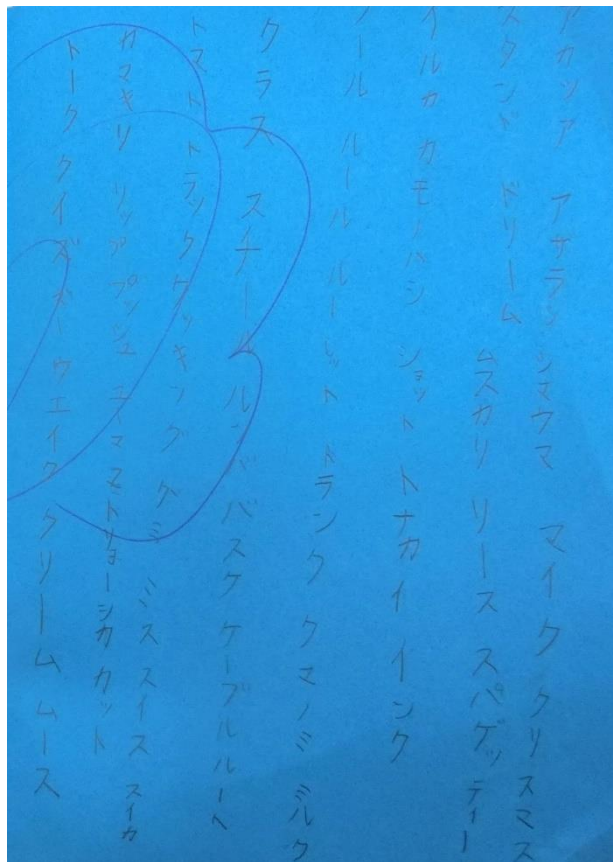 アカシア アザラシ シマウマ マイク クリスマス
スタンド ドリーム ムスカリ リース スパゲッティー
イルカ カモノハシ ショット トナカイ インク
ルール ルーレット トランク クマノミ ミルク
クラス ルンバ バスケ ケーブル ルーペ
トマト トラック クッキング グミ ミス スイス スイカ
カマキリ リップ プッシュ マトリョーシカ カット
トーク クイズ ウエイク クリーム ムース